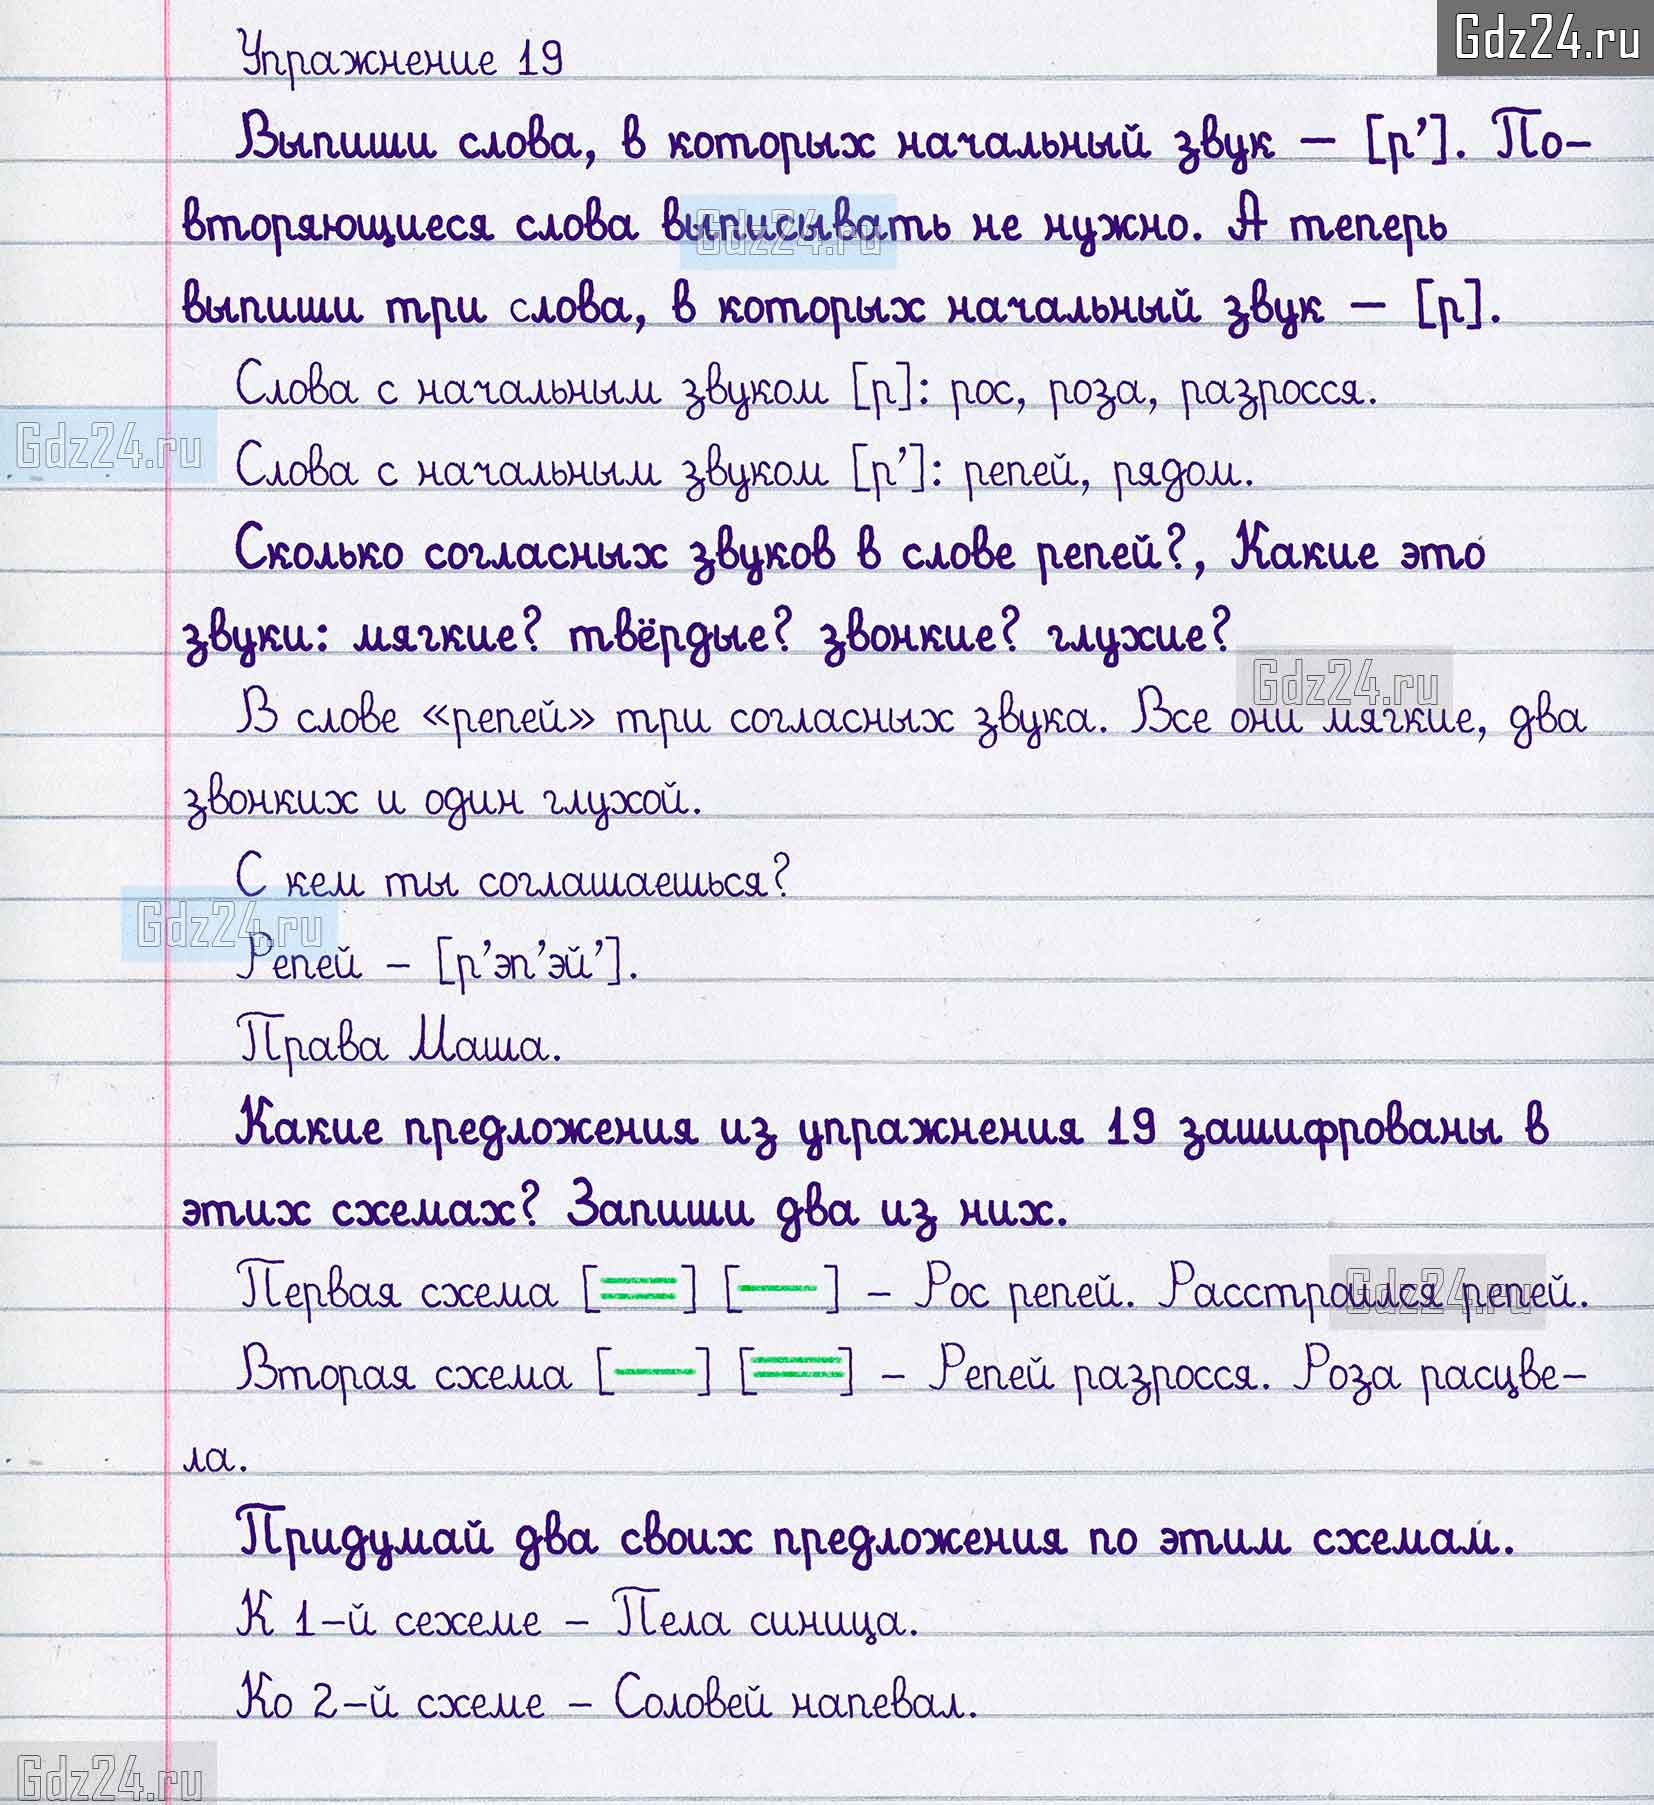 Gdz24.ru
Упражнение 19
Выпиши слова, в которых начальный звук – [р’]. По-
вторяющиеся слова выписывать не нужно. А теперь
Gdz24.ru
выпиши три слова, в которых начальный звук – [р].
Слова с начальным звуком [р]: рос, роза, разросся.
Gdz24.ru
Слова с начальным звуком [р’]: репей, рядом.
Сколько согласных звуков в слове репей?, Какие это
звуки: мягкие? твёрдые? звонкие? глухие?
Gdz24.ru
В слове «репей» три согласных звука. Все они мягкие, два
звонких и один глухой.
С кем ты соглашаешься?
Gdz24.ru
Репей – [р’эп’эй’].
Права Маша.
Какие предложения из упражнения 19 зашифрованы в
этих схемах? Запиши два из них.
Первая схема [ ] [ ] – Рос репей. Расстроился репей.
Gdz24.ru
Вторая схема [ ] [ ] – Репей разросся. Роза расцве-
ла.
Придумай два своих предложения по этим схемам.
К 1-й сехеме – Пела синица.
Ко 2-й схеме – Соловей напевал.
Gdz24.ru